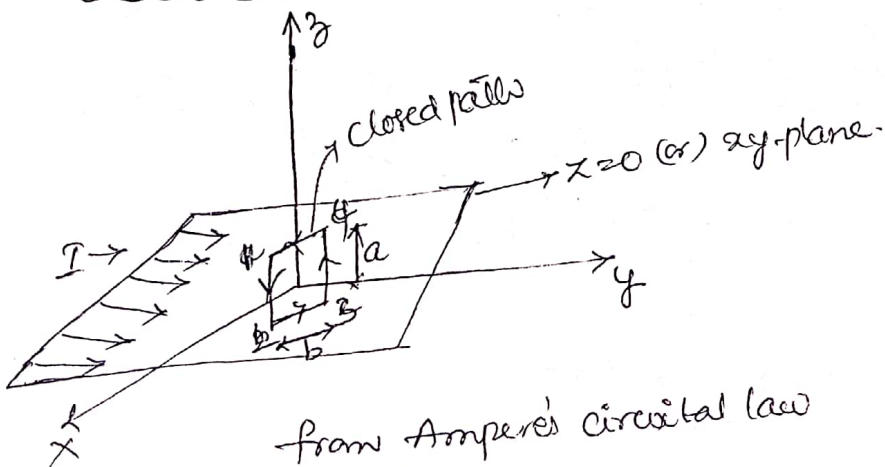 z
closed path
z=0 (or) xy-plane.
I→
a
y
b
x
from Ampere's circuital law